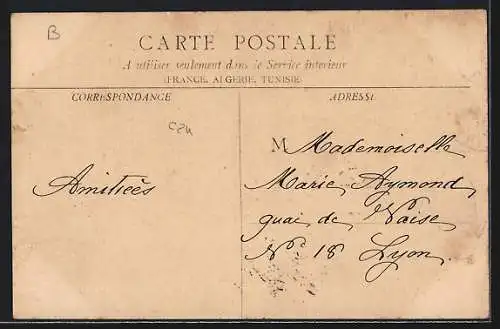 B
CARTE POSTALE
A utiliser seulement dans le Service intérieur
(FRANCE, ALGERIE, TUNISIE)
CORRESPONDANCE
ADRESSE
Amitiées
M Mademoiselle
Marie Aymond
quai de Vaise
N° 18 Lyon